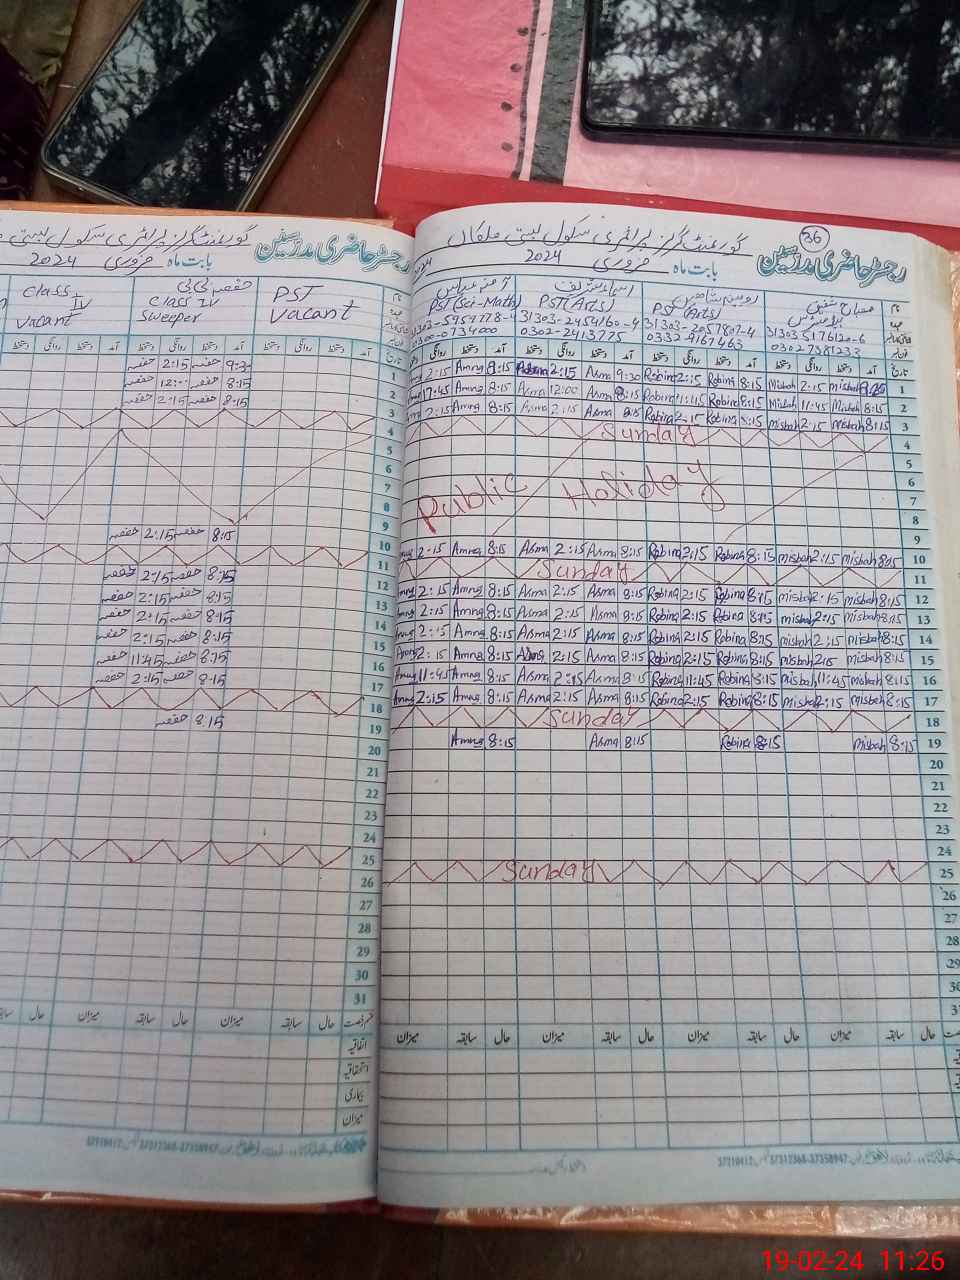 گورنمنٹ گرلز پرائمری سکول بستی ملکاں
36
رجسٹر حاضری مدرسین
بابت ماہ فروری 2024
نام
عہدہ
مصباح شفیق
31303-5176120-6
0302-7381233
روبینہ شاہین
PST (Arts)
31303-2057807-4
0332-9167463
اسماء شریف
PST (Arts)
31303-2454160-4
0302-2413775
آمنہ عباس
PST (Sci-Math)
31303-5959778-4
0300-0734000
تاریخ آمد دستخط روانگی دستخط آمد دستخط روانگی دستخط آمد دستخط روانگی دستخط آمد دستخط روانگی
2:15 Amna 8:15 2:15 Asma 9:30 Robina 2:15 Robina 8:15 Misbah 2:15 misbah 8:15 1
Amna 8:15 Asma 12:00 Asma 8:15 Robina 11:45 Robina 8:15 Misbah 11:45 Misbah 8:15 2
2:15 Amna 8:15 Asma 2:15 Asma 8:15 Robina 2:15 Robina 8:15 misbah 2:15 Misbah 8:15 3
Sunday 4
5
6
Public Holiday 7
8
9
2:15 Amna 8:15 Asma 2:15 Asma 8:15 Robina 2:15 Robina 8:15 misbah 2:15 misbah 8:15 10
Sunday 11
2:15 Amna 8:15 Asma 2:15 Asma 8:15 Robina 2:15 Robina 8:15 misbah 2:15 misbah 8:15 12
2:15 Amna 8:15 Asma 2:15 Asma 8:15 Robina 2:15 Robina 8:15 misbah 2:15 misbah 8:15 13
2:15 Amna 8:15 Asma 2:15 Asma 8:15 Robina 2:15 Robina 8:15 misbah 2:15 misbah 8:15 14
Amna 2:15 Amna 8:15 Asma 2:15 Asma 8:15 Robina 2:15 Robina 8:15 misbah 2:15 misbah 8:15 15
Amna 11:45 Amna 8:15 Asma 2:15 Asma 8:15 Robina 11:45 Robina 8:15 misbah 11:45 misbah 8:15 16
Amna 2:15 Amna 8:15 Asma 2:15 Asma 8:15 Robina 2:15 Robina 8:15 misbah 2:15 misbah 8:15 17
Sunday 18
Amna 8:15 Asma 8:15 Robina 8:15 misbah 8:15 19
20
21
22
23
24
Sunday 25
26
27
28
29
30
31
حال سابقہ میزان حال سابقہ میزان حال سابقہ میزان حال سابقہ میزان
گورنمنٹ گرلز پرائمری سکول بستی
رجسٹر حاضری مدرسین
بابت ماہ فروری 2024
نام
عہدہ
PST
Vacant
حفصہ بی بی
Class IV
Sweeper
Class IV
Vacant
تاریخ آمد دستخط روانگی دستخط آمد دستخط روانگی دستخط آمد دستخط روانگی دستخط
حفصہ 2:15 حفصہ 1
حفصہ 12:00 حفصہ 8:15 2
حفصہ 2:15 حفصہ 8:15 3
4
5
6
7
8
9
حفصہ 2:15 حفصہ 8:15 10
11
حفصہ 2:15 حفصہ 8:15 12
حفصہ 2:15 حفصہ 8:15 13
حفصہ 2:15 حفصہ 8:15 14
حفصہ 2:15 حفصہ 8:15 15
حفصہ 11:45 حفصہ 8:15 16
حفصہ 2:15 حفصہ 8:15 17
18
حفصہ 8:15 19
20
21
22
23
24
25
26
27
28
29
30
31
قسم رخصت حال سابقہ میزان حال سابقہ میزان حال
اتفاقیہ
استحقاقیہ
بیماری
میزان
19-02-24 11:26